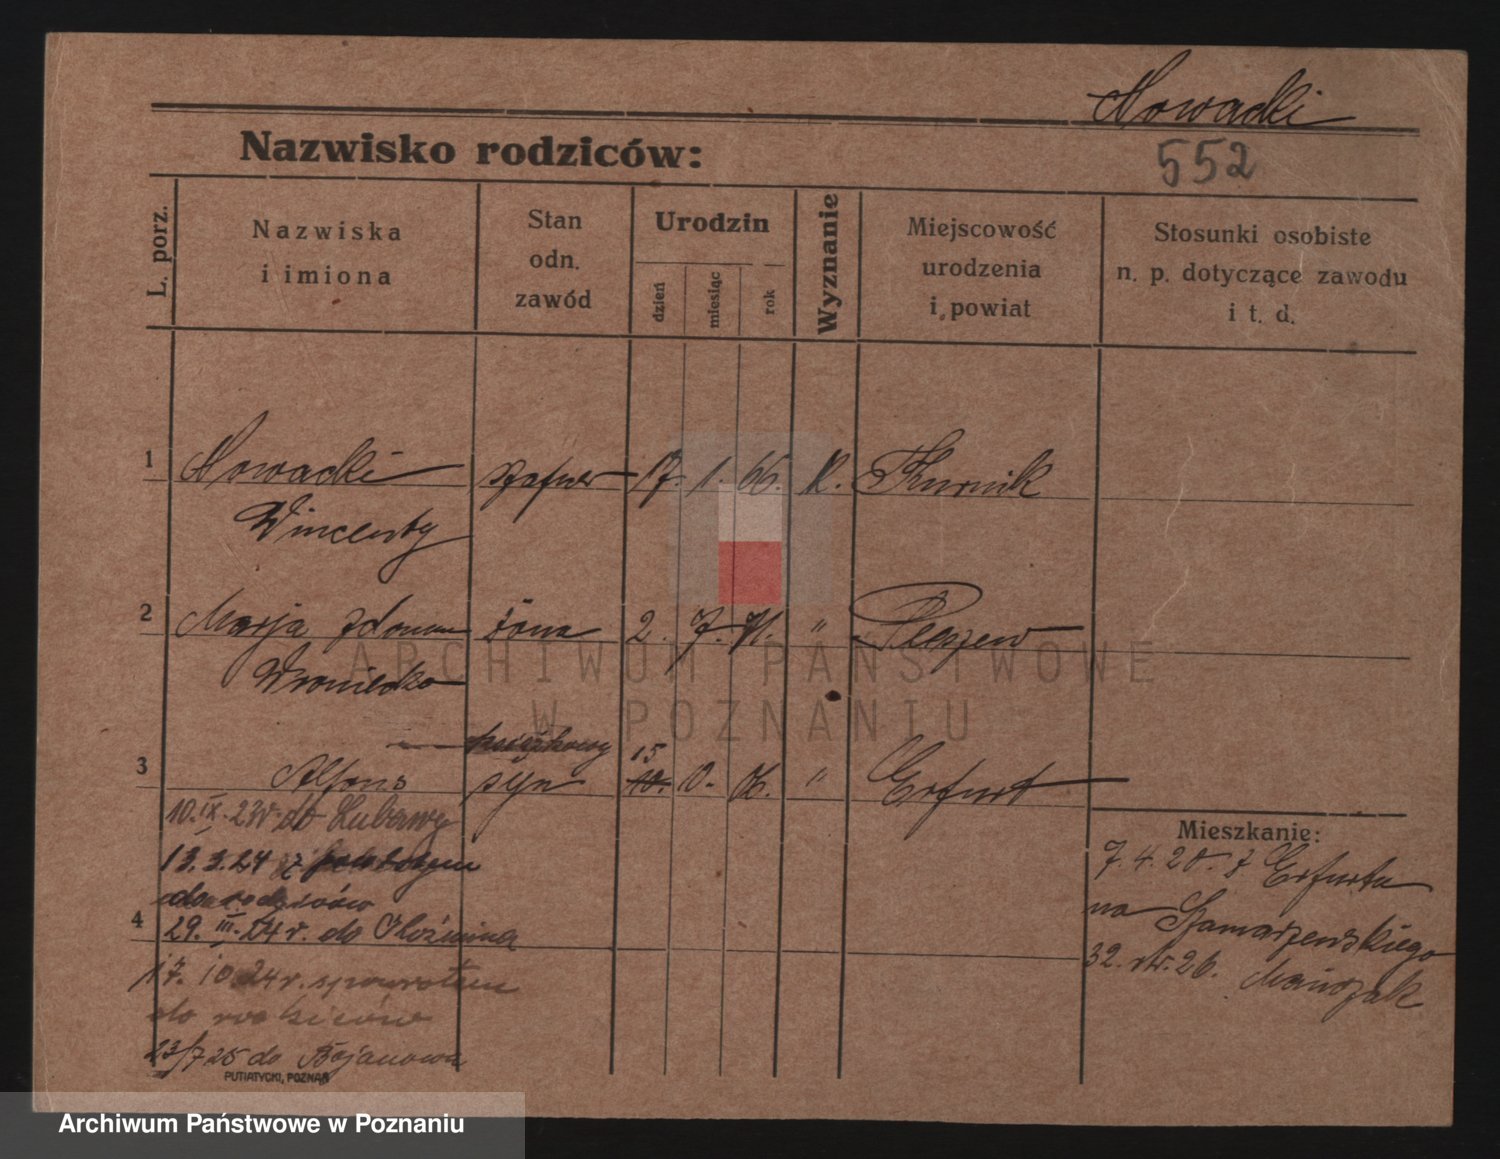 Nowacki
Nazwisko rodziców:
552
L. porz.
Nazwiska
i imiona
Stan
odn.
zawód
Urodzin
dzień
miesiąc
rok
Wyznanie
Miejscowość
urodzenia
i powiat
Stosunki osobiste
n. p. dotyczące zawodu
i t. d.
1 Nowacki szafner 17. 1. 66. K. Kurnik
Wincenty
2 Marja zdomu żona 2. 7. 71. " Pleszew
Wroniecka
książkowy 15
3 Alfons syn 10. 10. 06. " Erfurt
10. IX. 23 r. do Lubawy
Mieszkanie:
13. 3. 24 z powrotem
do rodziców
7. 4. 20. z Erfurtu
na Szamarzewskiego
32. str. 26. Mańczak
4 29. III. 24 r. do
17. 10 24 r. spowrotem
do rodziców
23/7 25 do Bojanowa
PUTIATYCKI, POZNAŃ
ARCHIWUM PAŃSTWOWE
W POZNANIU
Archiwum Państwowe w Poznaniu